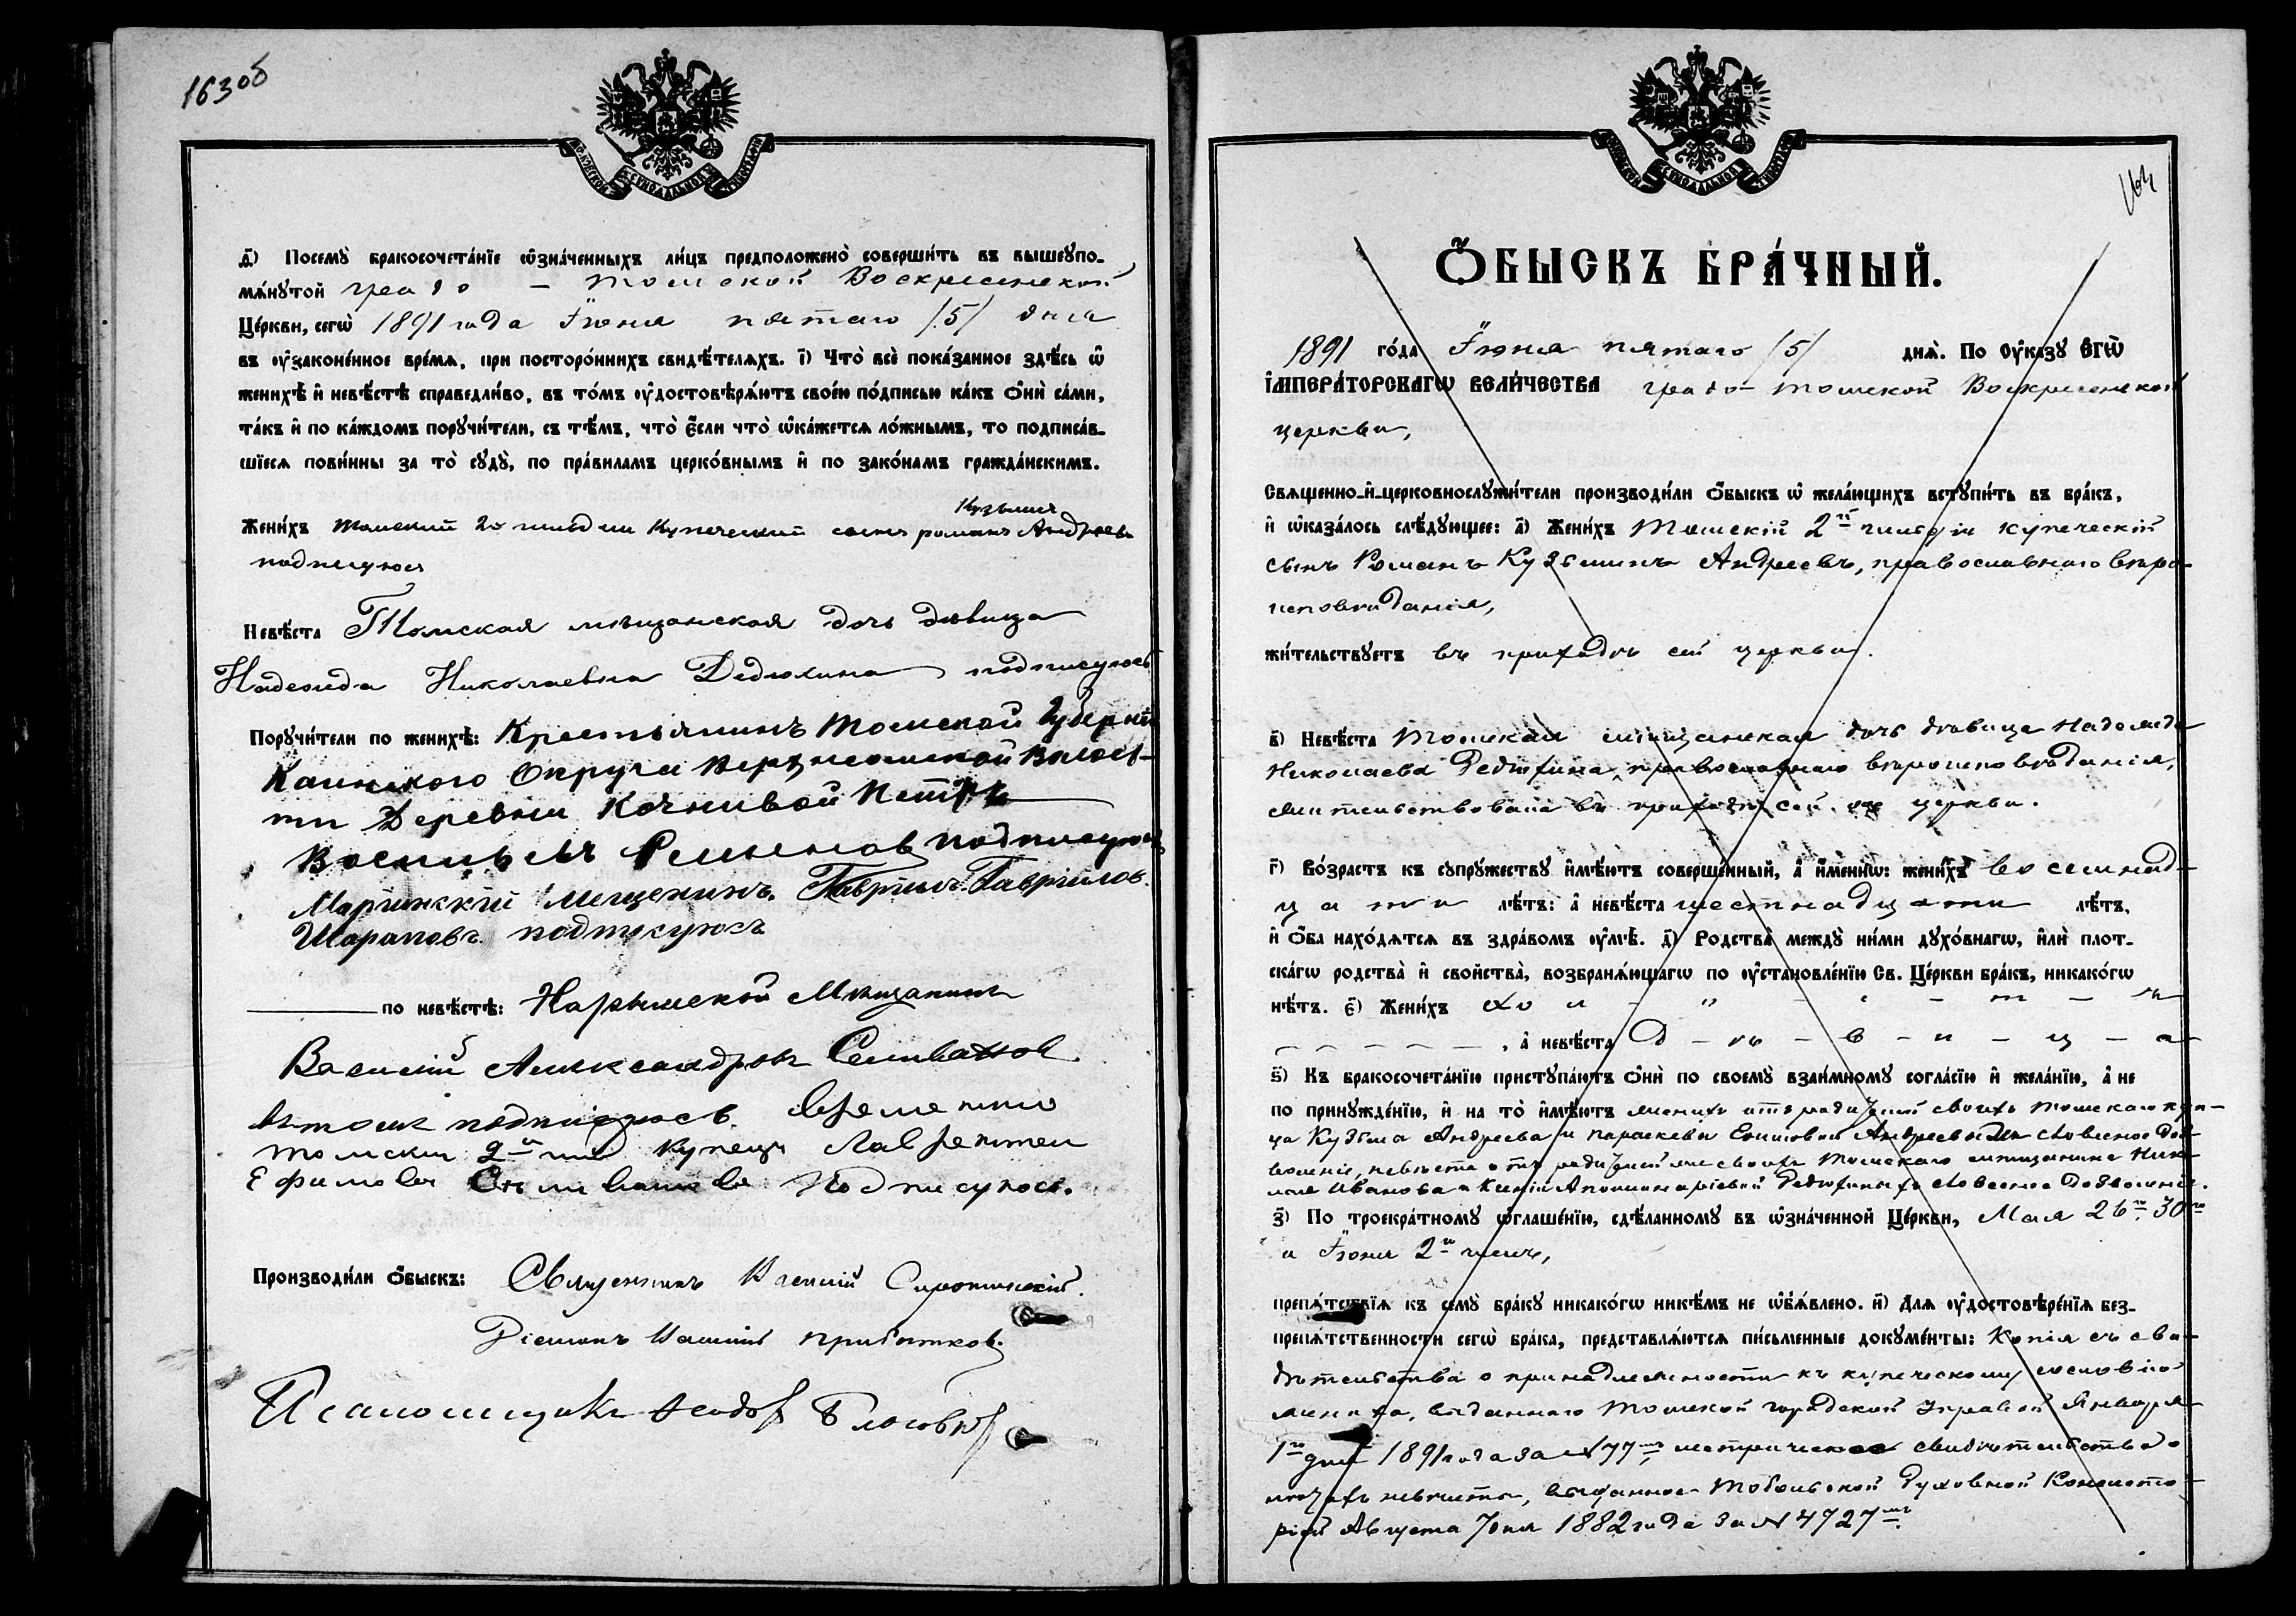 163 об
д҃) Посемꙋ̀ бракосочета́нїе ѡ҆зна́ченныхъ ли́цъ предположено̀ соверши́ть въ вышеꙋпо-
мѧ́нꙋтой градо - Томской Воскресенской
Це́ркви, сегѡ̀ 1891 года Іюня пятаго /5/ дня
въ ᲂу҆законе́нное вре́мѧ, при посторо́ннихъ свидѣ́телѧхъ. і҃) Что̀ всѐ пока́занное здѣ́сь ѡ҆
женихѣ̀ и҆ невѣ́стѣ справедли́во, въ то́мъ ᲂу҆достовѣрѧ́ютъ свое́ю по́дписью ка́къ ѻ҆нѝ са́ми,
та́къ и҆ по ка́ждомъ порꙋчи́тели, съ тѣ́мъ, что̀ є҆́сли что̀ ѡ҆ка́жетсѧ ло́жнымъ, то подписа́в-
шїесѧ пови́нны за то̀ сꙋдꙋ̀, по пра́виламъ церко́внымъ и҆ по зако́намъ гражда́нскимъ.
Кузьминъ
Жени́хъ Томский 2й гильдии Купеческий сынъ романъ Андреевъ
подписуюсь
Невѣ́ста Томская мѣщанская дочь дѣвица
Надежда Николаевна Дедюхина подписуюсь
Порꙋчи́тели по женихѣ̀: Крестьянинъ Томской Губернiи
Каинского Округа Волос-
ти Деревни Петръ
Васильевъ подписуюсь
Марiинскiй Мещенинъ Гаврiилъ Гаврiиловъ
Шараповъ подписуюсь
по невѣ́стѣ: Нарымской Мѣщанинъ
Василiй Александровъ Селивановъ
въ томъ подписуюсь. Временно
томски 2й гил Купецъ Лаврентеи
Ефимовъ Селивановъ Подписуюсь.
Производи́ли ѻ҆́быскъ: Священникъ Василiй Сиротинскiй.
Дiаконъ Прибытковъ.
Псаломщикъ Ѳеодоръ
164
Ѻ҆́БЫСКЪ БРА́ЧНЫЙ.
1891 го́да Іюня пятаго /5/ днѧ̀. По Оу҆ка́зꙋ Є҆ГѠ̀
І҆МПЕРА́ТОРСКАГѠ ВЕЛИ́ЧЕСТВА градо-Томской Воскресенской
церкви,
Свѧще́нно-и҆-церковнослꙋжи́тели производи́ли ѻ҆́быскъ ѡ҆ жела́ющихъ встꙋпи́ть въ бра́къ,
и҆ ѡ҆каза́лось слѣ́дꙋющее: а҃) Жени́хъ Томскiй 2й гильдiи купеческiй
сынъ Романъ Кузьминъ Андреевъ, православнаго вѣро-
исповѣданiя,
жи́тельствꙋетъ въ приходѣ сей церкви.
в҃) Невѣ́ста Томская мѣщанская дочь дѣвица Надежда
Николаева Дедюхина, православнаго вѣроисповѣданiя,
жительствовала въ приходѣ сей же церкви.
г҃) Во́зрастъ къ сꙋпрꙋ́жествꙋ и҆мѣ́ютъ соверше́нный, а҆ и҆́меннѡ: жени́хъ восемнад-
цати лѣ́тъ: а҆ невѣ́ста шестнадцати лѣ́тъ,
и҆ ѻ҆́ба нахо́дѧтсѧ въ здра́вомъ ᲂу҆мѣ̀. д҃) Родства̀ междꙋ̀ ни́ми дꙋхо́внагѡ, и҆лѝ плот-
ска́гѡ родства̀ и҆ сво́йства, возбранѧ́ющагѡ по ᲂу҆становле́нїю Св. Це́ркви бра́къ, никако́гѡ
нѣ́тъ. є҃) Жени́хъ хо л - о - с - т - ъ
, а҆ невѣ́ста д - ѣ - в - и - ц - а
ѕ҃) Къ бракосочета́нїю пристꙋпа́ютъ ѻ҆нѝ по своемꙋ̀ взаи́мномꙋ согла́сїю и҆ жела́нїю, а҆ не
по принꙋжде́нїю, и҆ на то̀ и҆мѣ́ютъ женихъ отъ родителей своихъ Томскаго куп-
ца Кузьма Андреева и Параскевы Андреевыхъ словесное доз-
воленiе, невѣста отъ родителей же своихъ Томскаго мѣщанина Нико-
лая Иванова и Ксенiи Аполинарiевой Дедюхиныхъ словесное дозволенiе.
з҃) По троекра́тномꙋ ѡ҆глаше́нїю, сдѣ́ланномꙋ въ ѡ҆зна́ченной Це́ркви, Мая 26го, 30го
и Іюня 2го числъ,
препѧ́тствїѧ къ семꙋ̀ бра́кꙋ никако́гѡ никѣ́мъ не ѡ҆б̾ѧ́влено. и҃) Для ᲂу҆достовѣре́нїѧ без-
препѧ́тственности сегѡ̀ бра́ка, представлѧ́ютсѧ пи́сьменные докꙋме́нты: Копiя съ сви-
дѣтельства о принадлежности къ купеческому сословiю
жениха, выданнаго Томской городской Управой Января
1го дня 1891 года за № 77мъ, метрическое свидѣтельство о
невѣсты, выданное Тобольской Духовной Консисто-
рiей Августа 7 дня 1882 года за № 4727мъ.